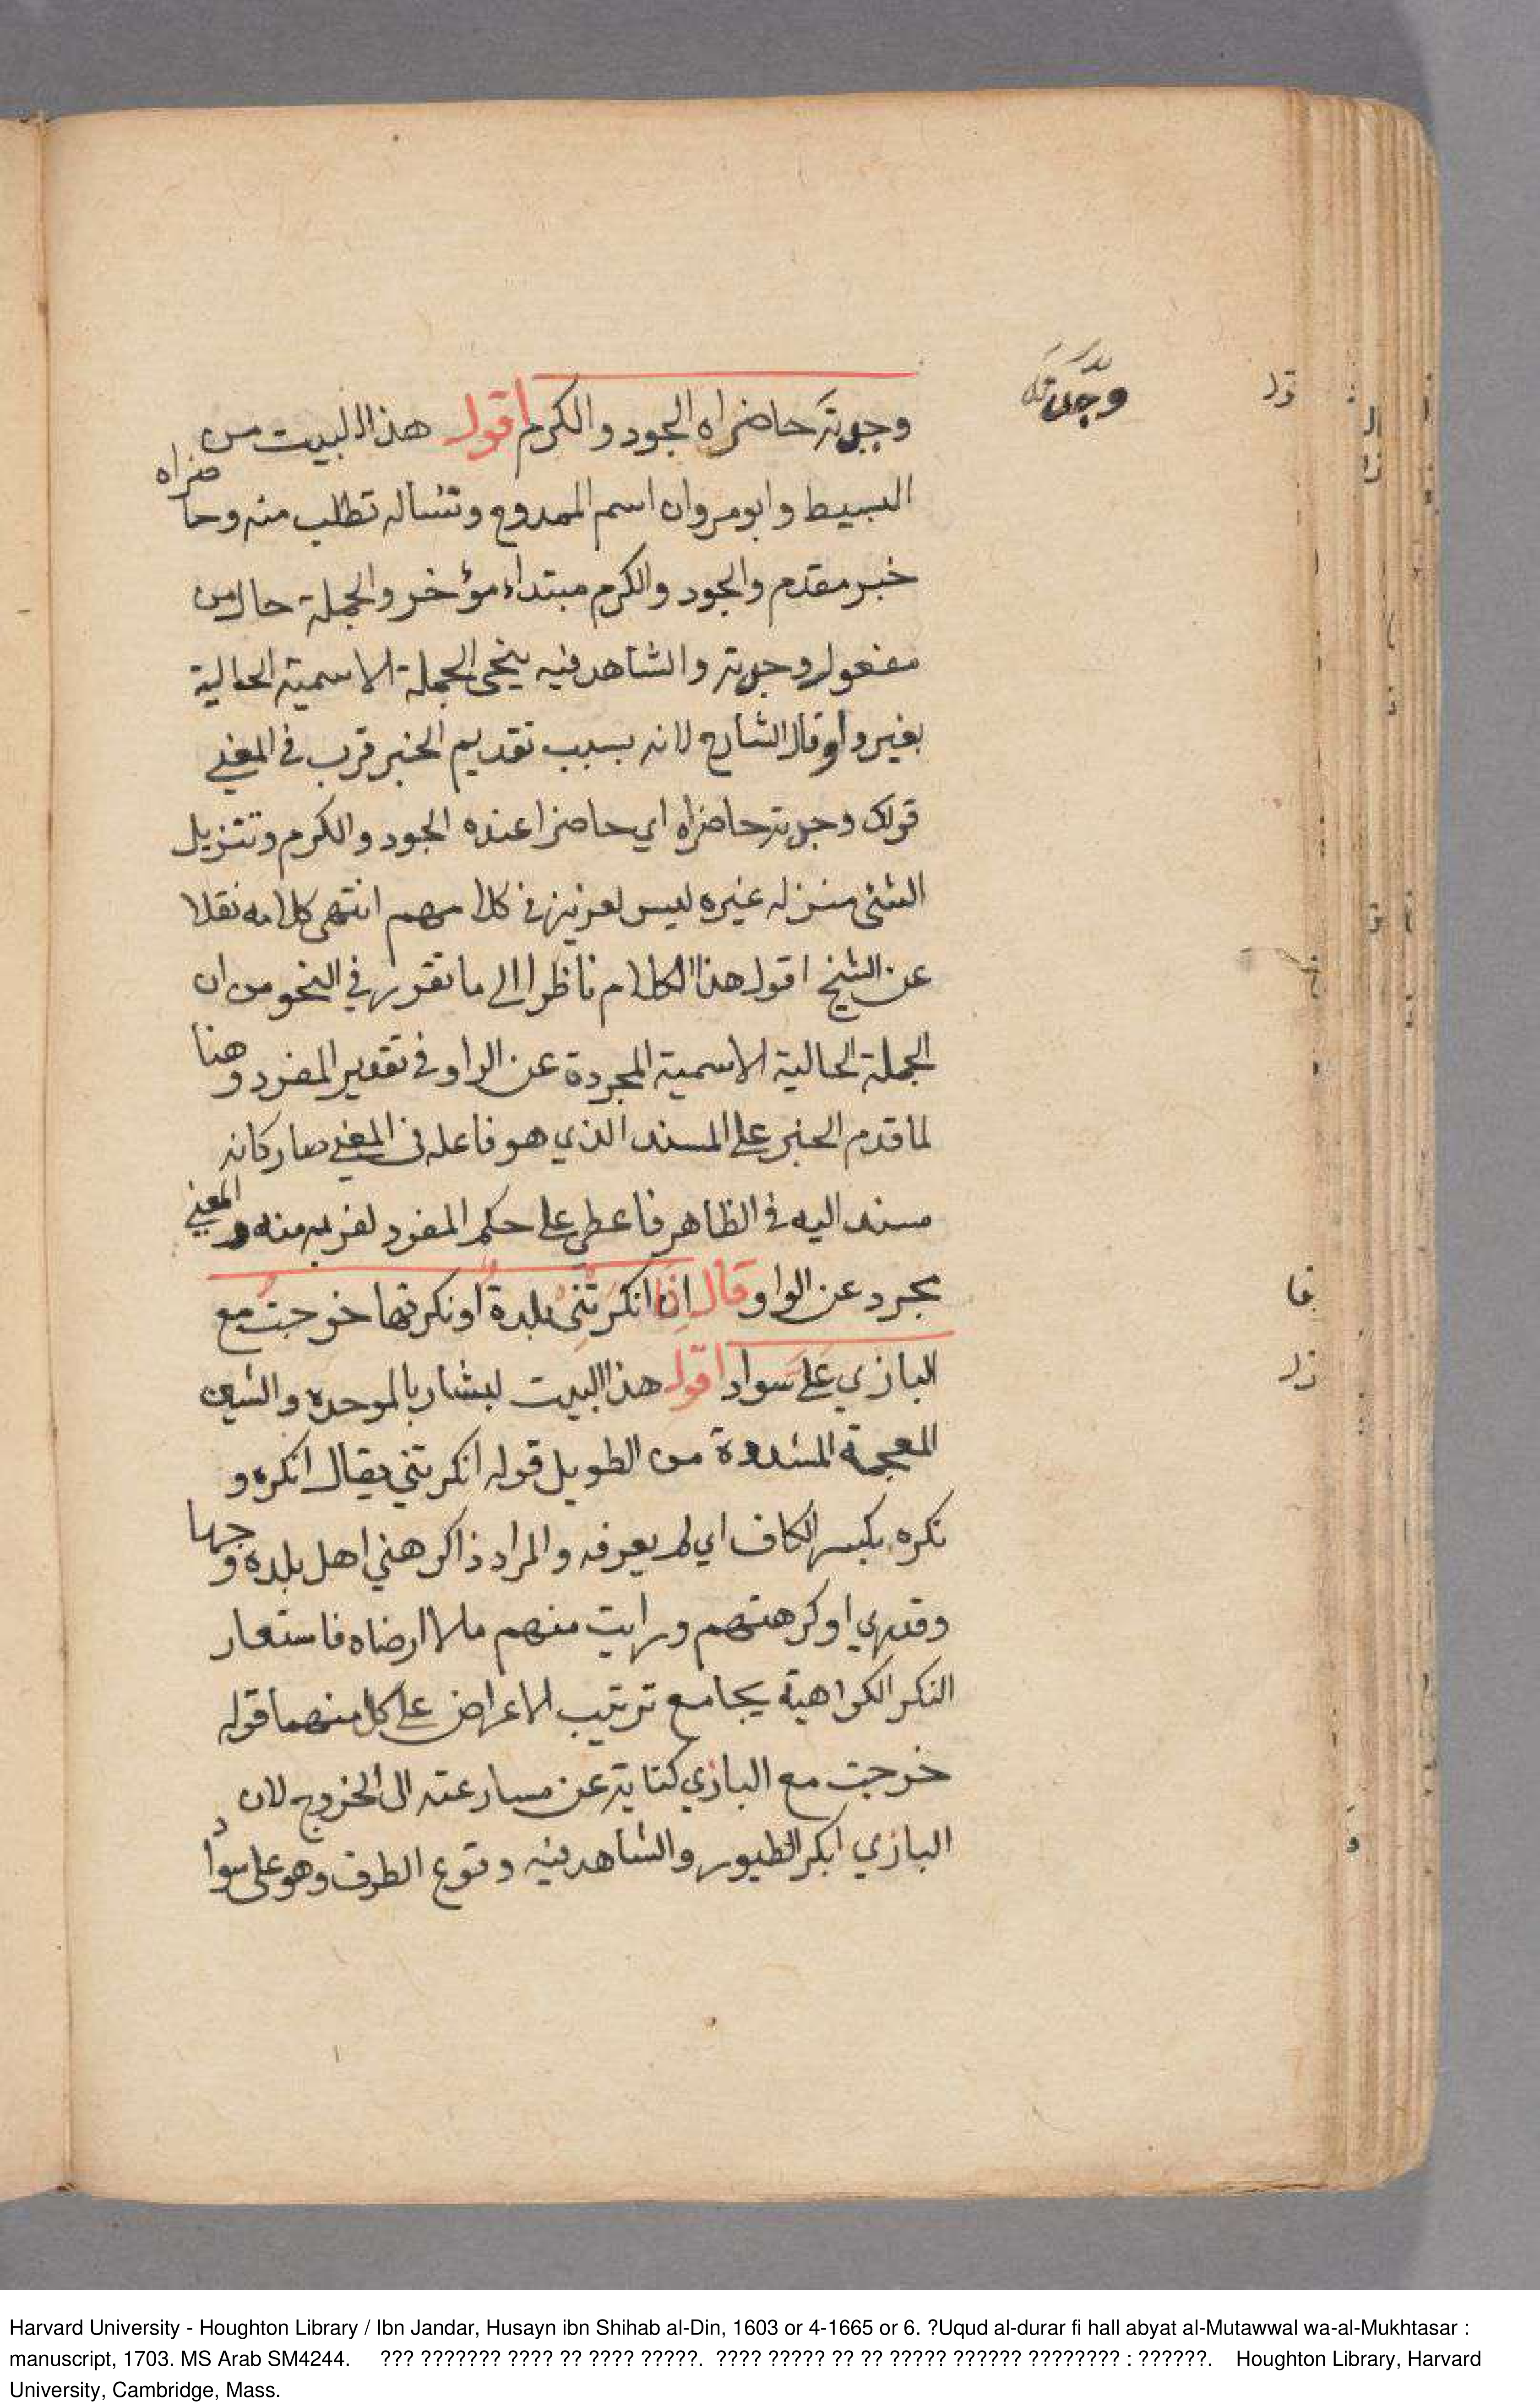 وجدته حاضراه الجود والكرم اقول هذا البيت من
البسيط وابومروان اسم الممدوح وتسأله تطلب منه وحاضراه
خبر مقدم والجود والكرم مبتداء مؤخر والجملة حال من
مفعول وجدته والشاهد فيه الجملة الاسمية الحالية
بغير واو قال الشارح لانه بسبب تقديم الخبر قرب في المعني
قولك وجدته حاضراه اي حاضرا عنده الجود والكرم وتنزيل
الشئ منزله غيره ليس لعزيز في كلامهم انتهى كلامه نقلا
عن الشيخ اقول هذا الكلام ناظرا الي ما تقرر في النحو من ان
الجملة الحالية الاسمية المجردة عن الواو في تقدير المفرد وهنا
لما قدم الخبر علي المسند الذي هو فاعله في المعني صار كانه
مسند اليه في الظاهر فاعطي علي حكم المفرد لقربه منه والمعني
مجرد عن الواو قال اذا انكرتني بلدة او نكرتها خرجت مع
البازي علي سواد اقول هذا البيت لبشار بالموحدة والشين
المعجمة المشددة من الطويل قوله انكرتني يقال انكره و
نكره بكسر الكاف اي لم يعرفه والمراد اهل بلدة وجهها
وقدري او كرهتهم ورايت منهم ملا ارضاه فاستعار
النكر الكراهية بجامع ترتيب الاعراض علي كل منهما قوله
خرجت مع البازي كناية عن مسارعته الى الخروج لان
البازي ابكر الطيور والشاهد فيه وقوع الظرف وهو على سواد
Harvard University - Houghton Library / Ibn Jandar, Husayn ibn Shihab al-Din, 1603 or 4-1665 or 6. ?Uqud al-durar fi hall abyat al-Mutawwal wa-al-Mukhtasar :
manuscript, 1703. MS Arab SM4244. ??? ??????? ???? ?? ???? ?????. ???? ????? ?? ?? ????? ?????? ???????? : ??????. Houghton Library, Harvard
University, Cambridge, Mass.